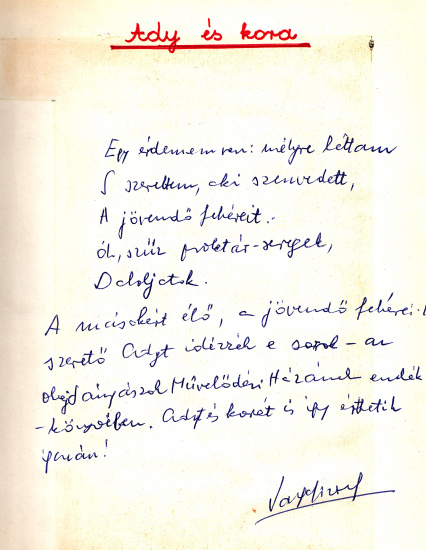 Ady és kora
Egy érdemem van: mélyre láttam
S szerettem, aki szenvedett,
A jövendő fehéreit.
óh, szűz proletár-seregek,
Daloljatok.
A másokért élő, a jövendő fehérei-t
szerető Adyt idézzék e sorok – az
olajbányászok Művelődési Házának emlék
-könyvében. Adyt és korát is így érthetik
igazán!